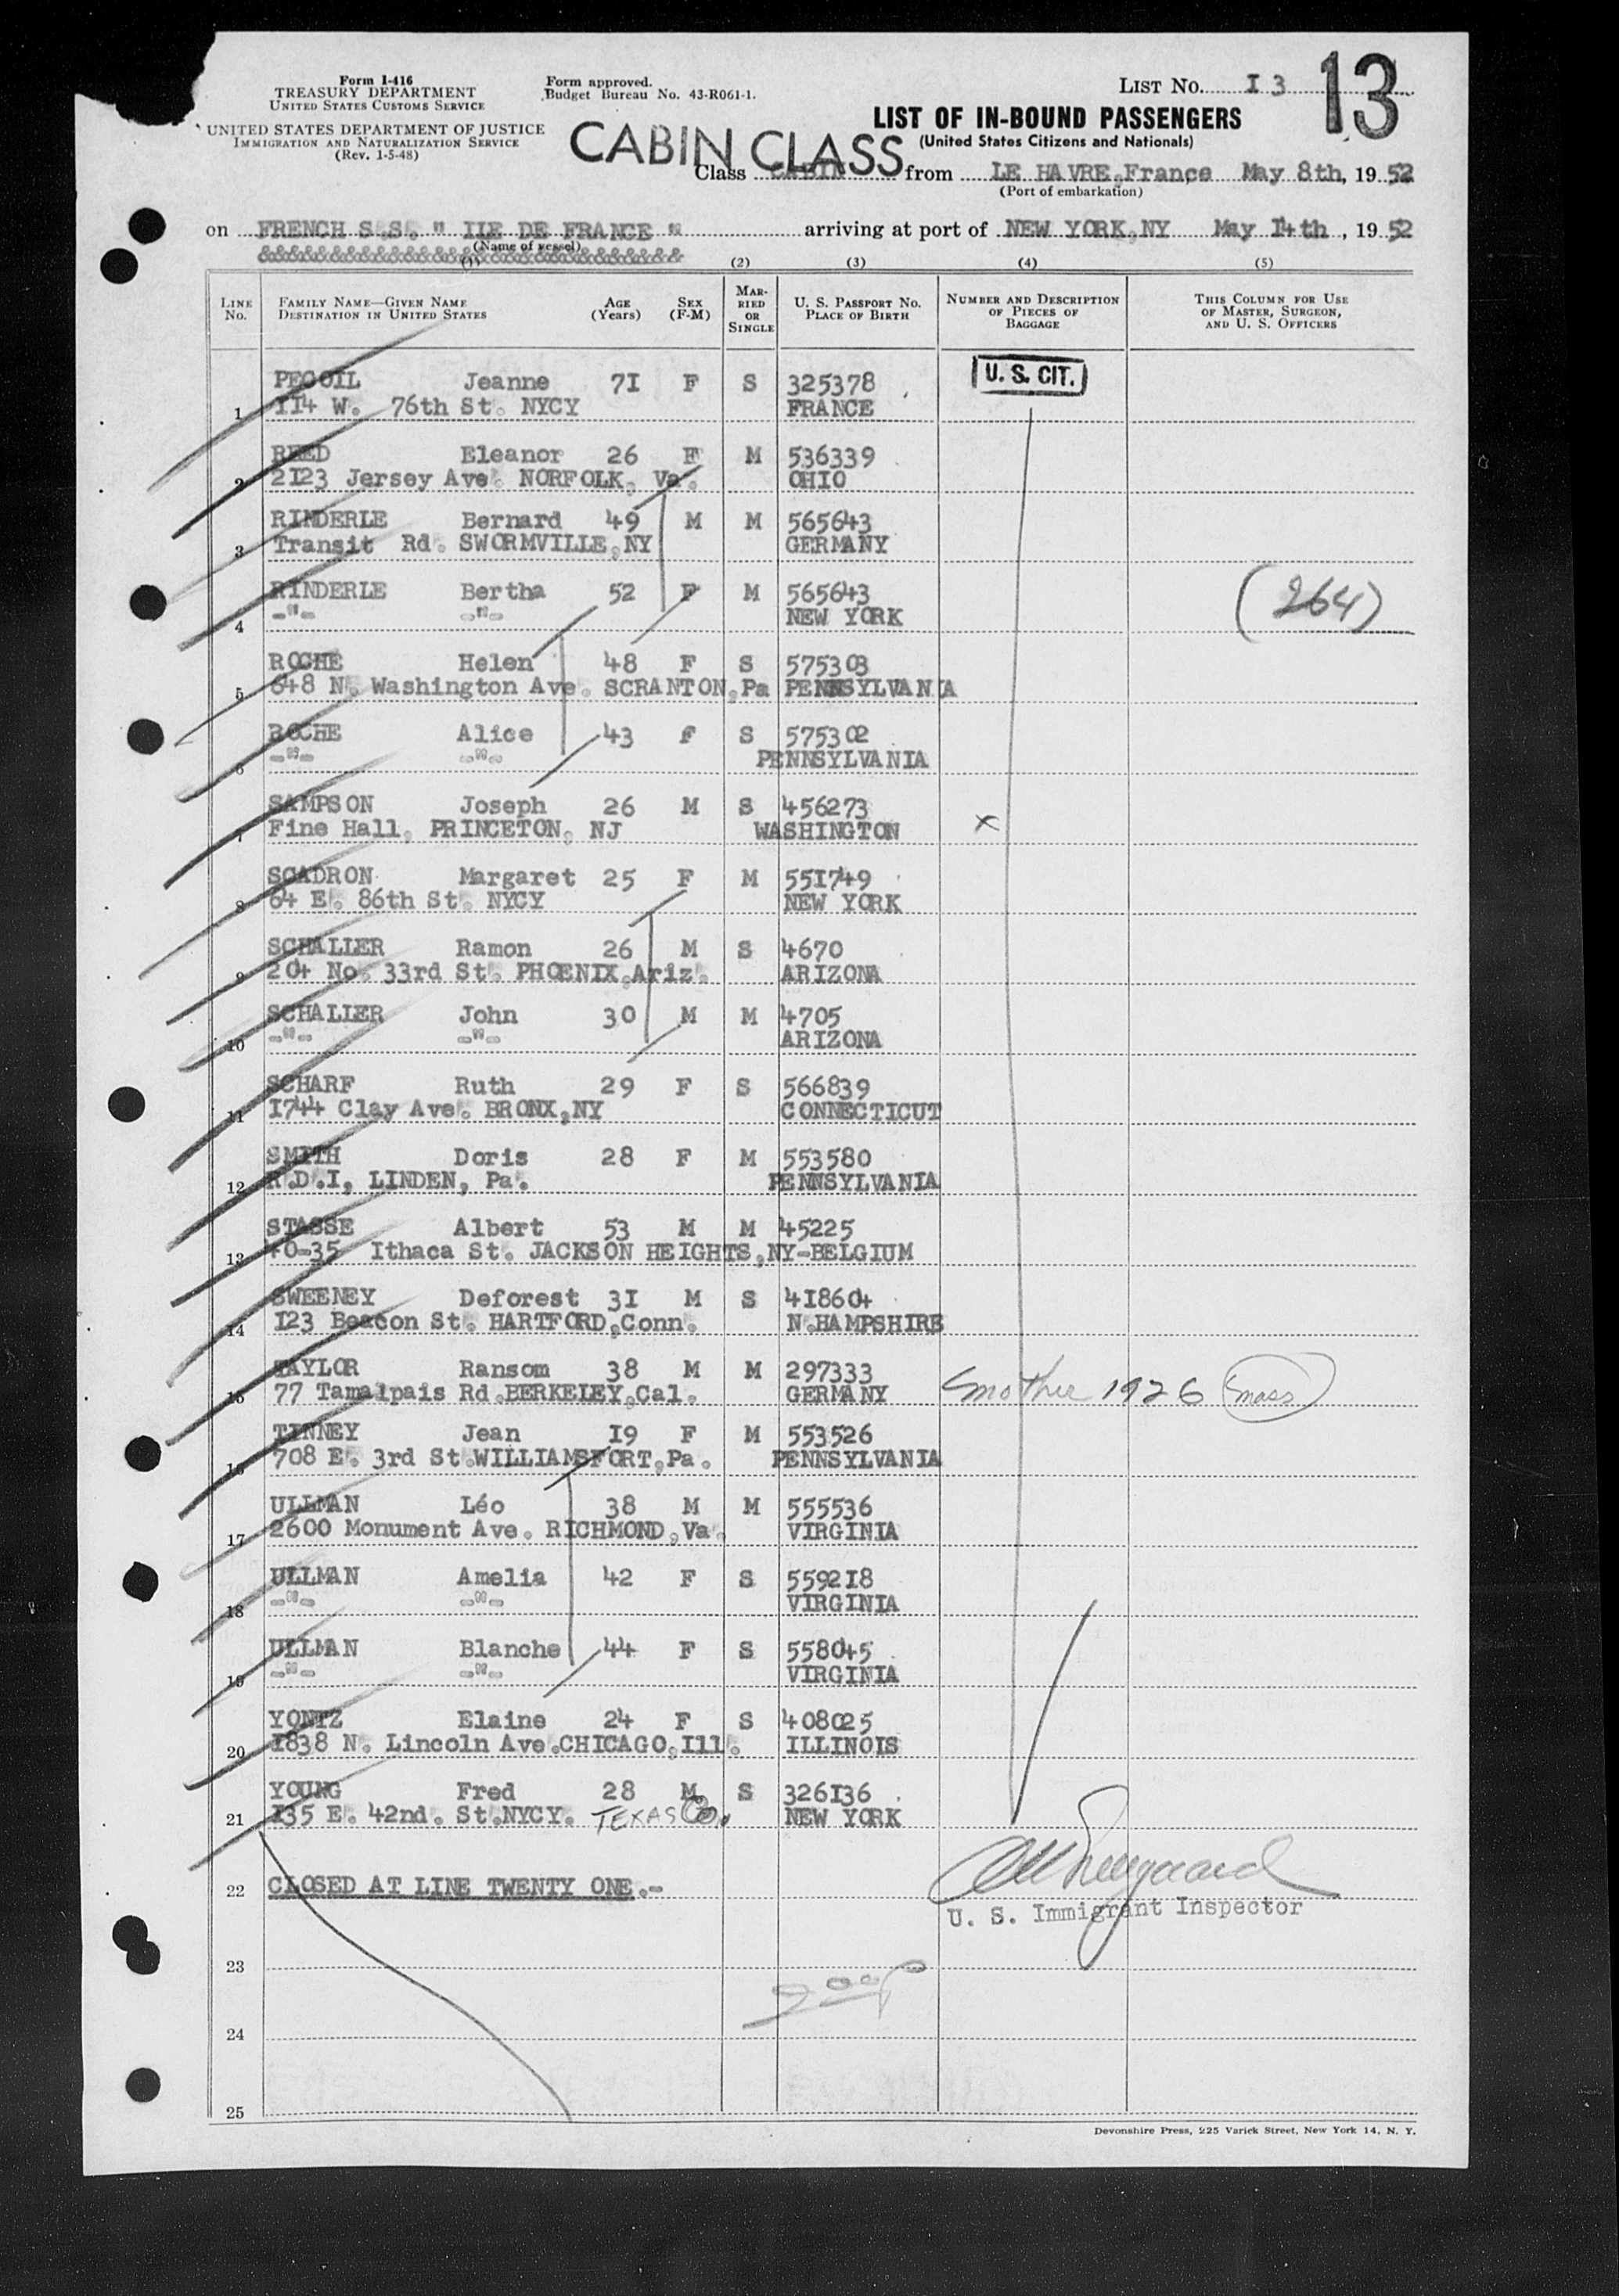 Form I-416
TREASURY DEPARTMENT
UNITED STATES CUSTOMS SERVICE
UNITED STATES DEPARTMENT OF JUSTICE
IMMIGRATION AND NATURALIZATION SERVICE
(Rev. 1-5-48)
Form approved.
Budget Bureau No. 43-R061-1.
LIST No. I 3
13
LIST OF IN-BOUND PASSENGERS
(United States Citizens and Nationals)
CABIN CLASS
Class CABIN from LE HAVRE,France May 8th, 1952
(Port of embarkation)
on FRENCH S.S. " ILE DE FRANCE " arriving at port of NEW YORK,NY May I4th, 1952
(Name of vessel)
&&&&&&&&&&&&&&&&&&&&&&&&&&&&&&&&
(1) (2) (3) (4) (5)
LINE No. FAMILY NAME—GIVEN NAME DESTINATION IN UNITED STATES AGE (Years) SEX (F-M) MARRIED OR SINGLE U. S. PASSPORT No. PLACE OF BIRTH NUMBER AND DESCRIPTION OF PIECES OF BAGGAGE THIS COLUMN FOR USE OF MASTER, SURGEON, AND U. S. OFFICERS
PEGOIL Jeanne 7I F S 325378 U. S. CIT.
1 II4 W. 76th St. NYCY FRANCE
REED Eleanor 26 F M 536339
2 2I23 Jersey Ave. NORFOLK, Va. OHIO
RINDERLE Bernard 49 M M 565643
3 Transit Rd. SWORMVILLE,NY GERMANY
RINDERLE Bertha 52 F M 565643 (264)
4 -"- -"- NEW YORK
ROCHE Helen 48 F S 575303
5 648 N. Washington Ave. SCRANTON,Pa PENNSYLVANIA
ROCHE Alice 43 F S 575302
6 -"- -"- PENNSYLVANIA
SAMPSON Joseph 26 M S 456273
7 Fine Hall, PRINCETON, NJ WASHINGTON x
SCADRON Margaret 25 F M 55I749
8 64 E. 86th St. NYCY NEW YORK
SCHALLER Ramon 26 M S 4670
9 204 No. 33rd St. PHOENIX,Ariz. ARIZONA
SCHALLER John 30 M M 4705
10 -"- -"- ARIZONA
SCHARF Ruth 29 F S 566839
11 I744 Clay Ave. BRONX,NY CONNECTICUT
SMITH Doris 28 F M 553580
12 R.D.I, LINDEN, Pa. PENNSYLVANIA
STASSE Albert 53 M M 45225
13 40-35 Ithaca St. JACKSON HEIGHTS,NY-BELGIUM
SWEENEY Deforest 3I M S 4I8604
14 I23 Beacon St. HARTFORD,Conn. N.HAMPSHIRE
TAYLOR Ransom 38 M M 297333
15 77 Tamalpais Rd.BERKELEY,Cal. GERMANY mother 1926 (mass)
TINNEY Jean I9 F M 553526
16 708 E. 3rd St.WILLIAMSFORT,Pa. PENNSYLVANIA
ULLMAN Léo 38 M M 555536
17 2600 Monument Ave. RICHMOND,Va. VIRGINIA
ULLMAN Amelia 42 F S 5592I8
18 -"- -"- VIRGINIA
ULLMAN Blanche 44 F S 558045
19 -"- -"- VIRGINIA
YONTZ Elaine 24 F S 408025
20 I838 N. Lincoln Ave.CHICAGO,Ill. ILLINOIS
YOUNG Fred 28 M S 326I36
21 I35 E. 42nd. St.NYCY. TEXAS Co. NEW YORK
22 CLOSED AT LINE TWENTY ONE.-
U. S. Immigrant Inspector
23
24
25
Devonshire Press, 225 Varick Street, New York 14, N. Y.